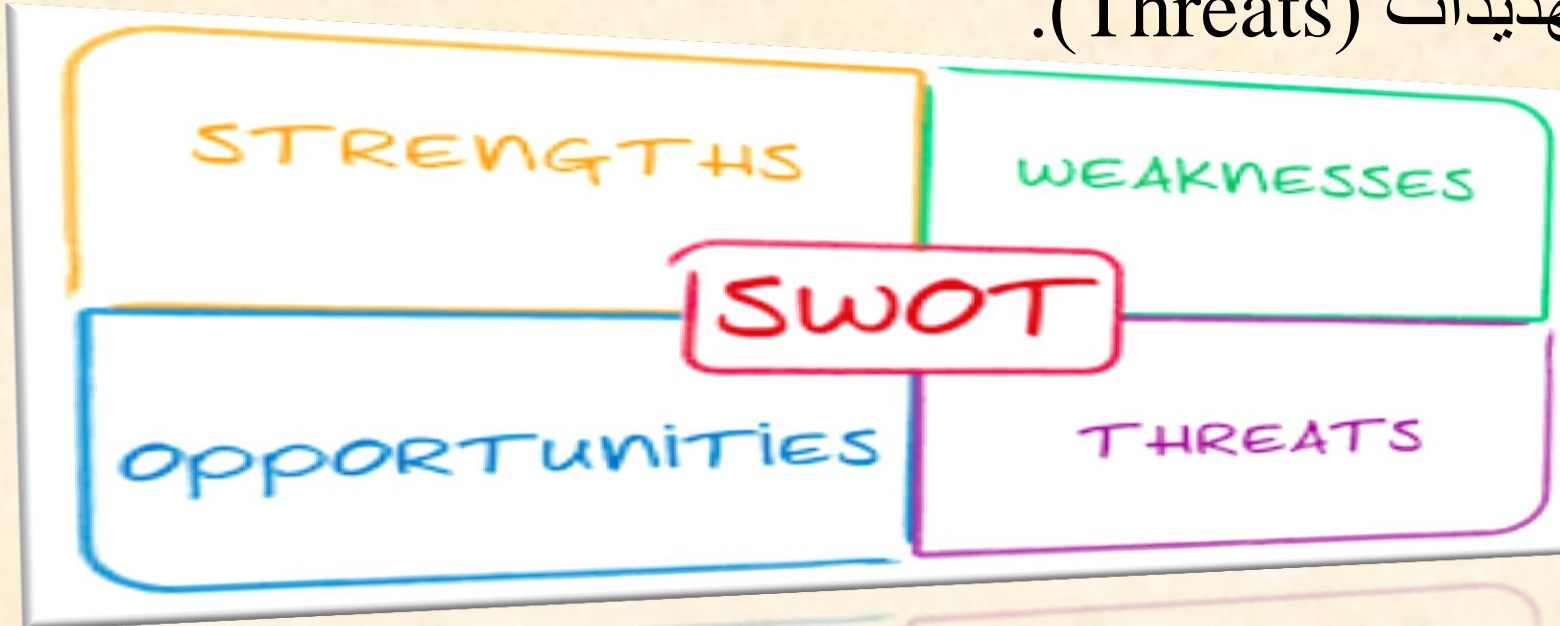 (Threats).
STRENGTHS
WEAKNESSES
SWOT
OPPORTUNITIES
THREATS